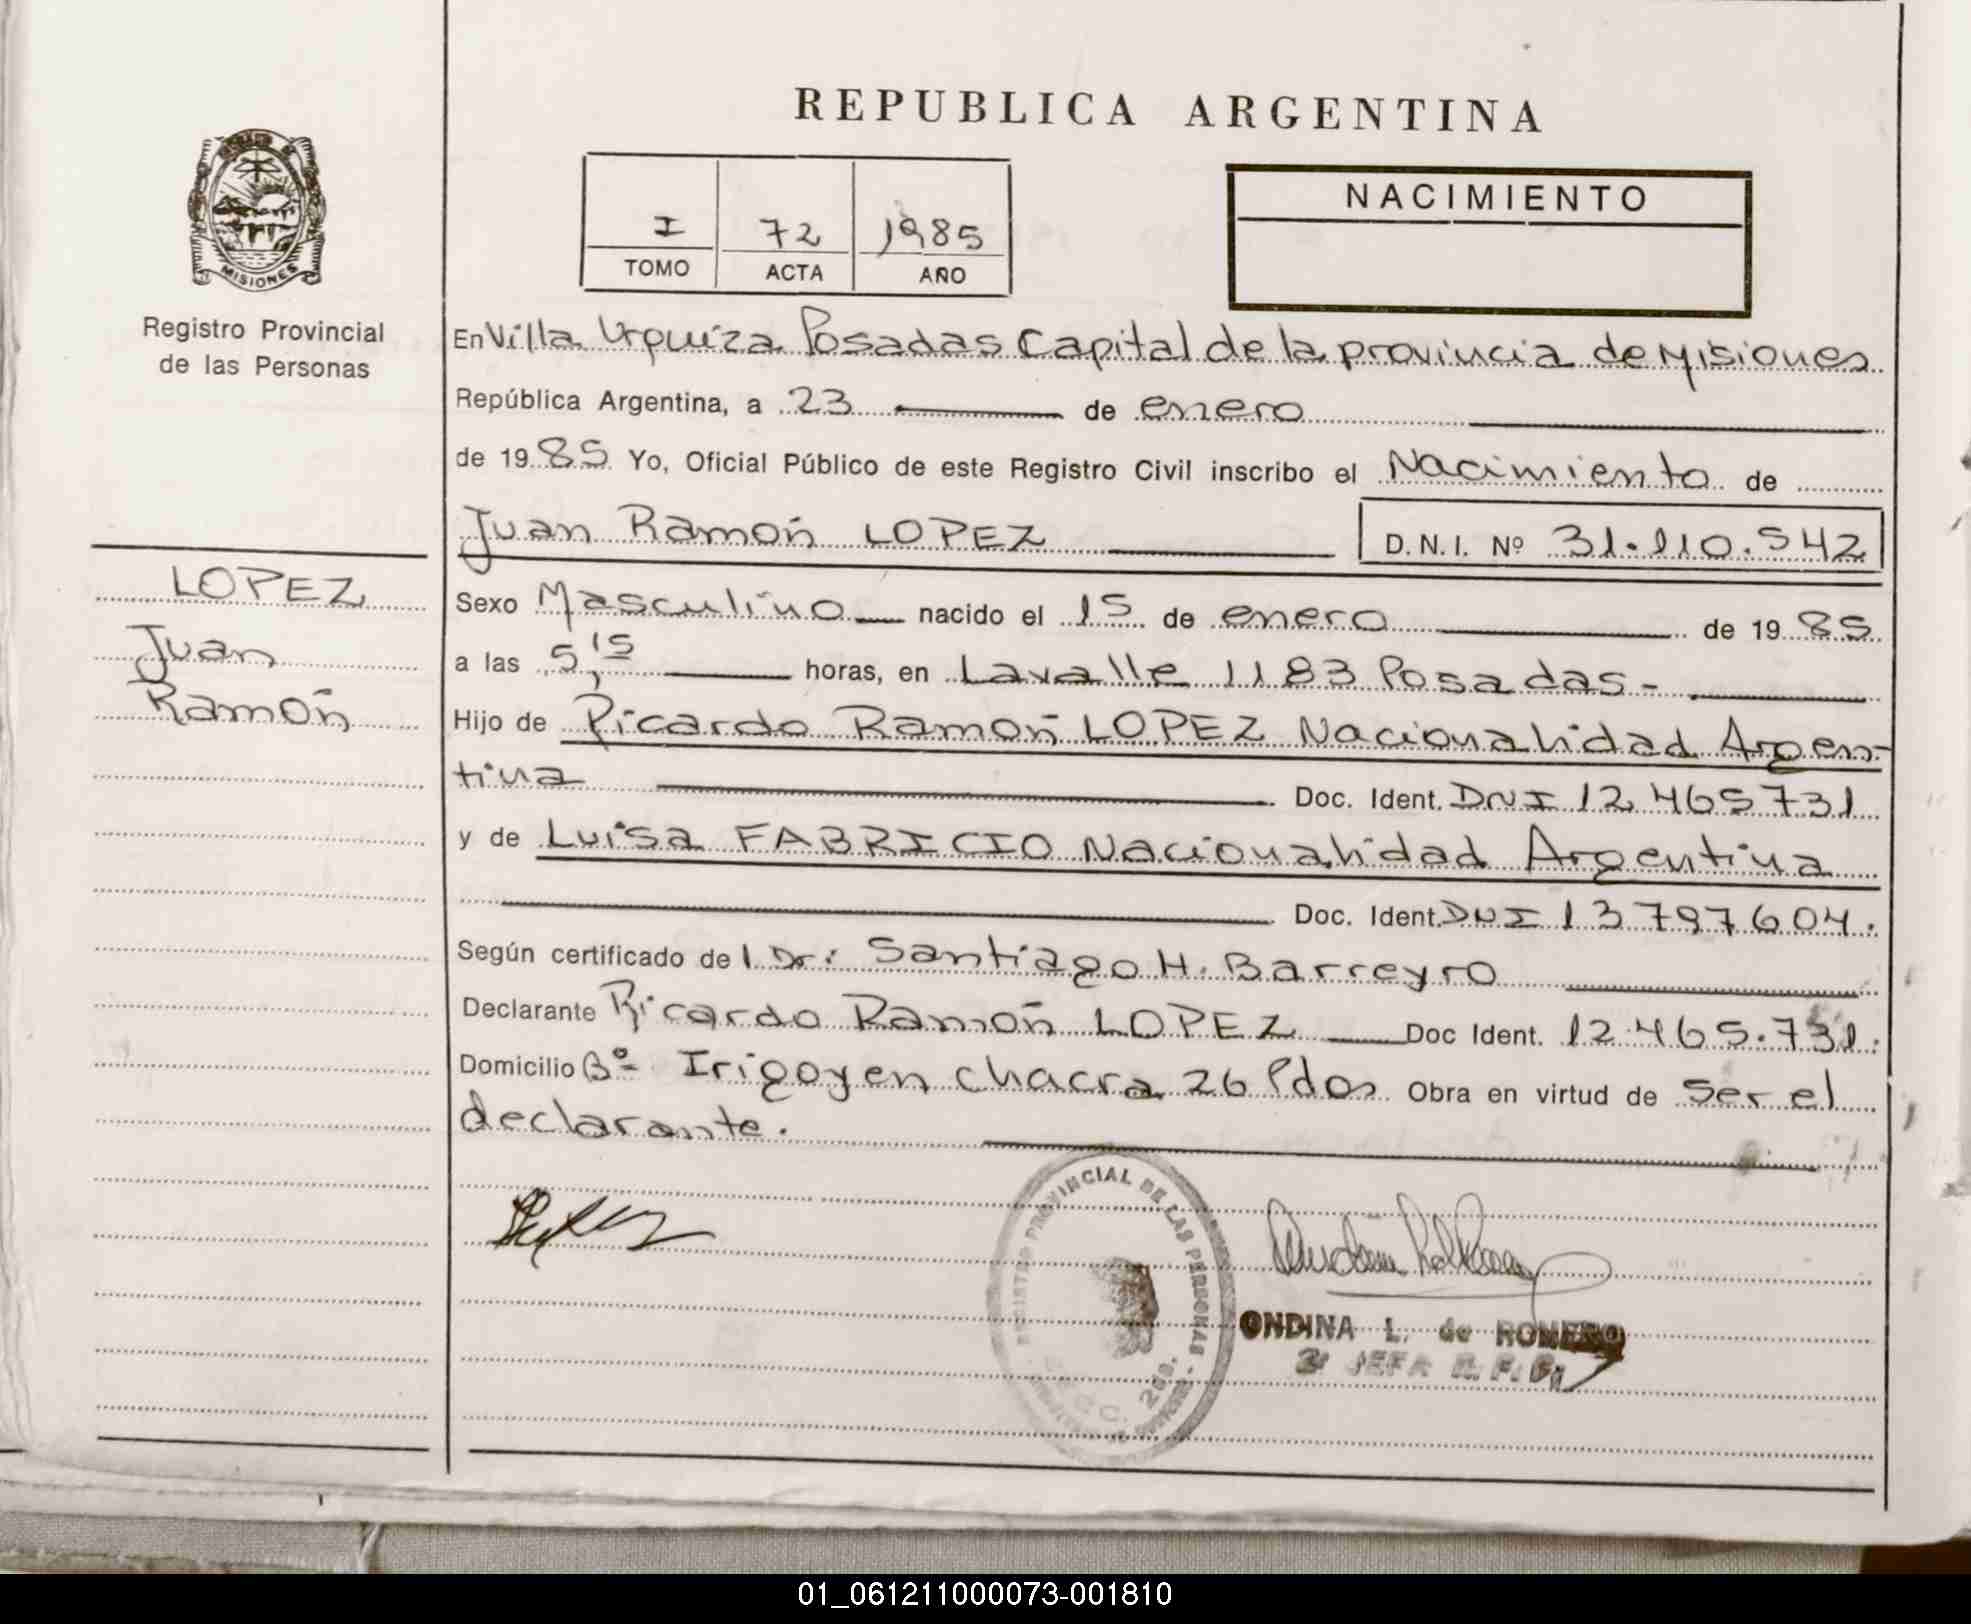 REPUBLICA ARGENTINA
I 72 1985
TOMO ACTA AÑO
NACIMIENTO
MISIONES
Registro Provincial
de las Personas
LOPEZ
Juan
Ramón
En Villa Urquiza Posadas Capital de la provincia de Misiones
República Argentina, a 23 de enero
de 1985 Yo, Oficial Público de este Registro Civil inscribo el Nacimiento de
Juan Ramón LOPEZ D.N.I. Nº 31.110.542
Sexo Masculino nacido el 15 de enero de 1985
a las 5,15 horas, en Lavalle 1183 Posadas-
Hijo de Ricardo Ramón LOPEZ Nacionalidad Argen-
tina Doc. Ident. DNI 12465731
y de Luisa FABRICIO Nacionalidad Argentina
Doc. Ident. DNI 13797604.
Según certificado del Dr: Santiago H. Barreyro
Declarante Ricardo Ramón LOPEZ Doc Ident. 12.465.731.
Domicilio Bº Irigoyen chacra 26 Pdas Obra en virtud de ser el
declarante.
REGISTRO PROVINCIAL DE LAS PERSONAS
ONDINA L. de ROMERO
JEFA
01_061211000073-001810